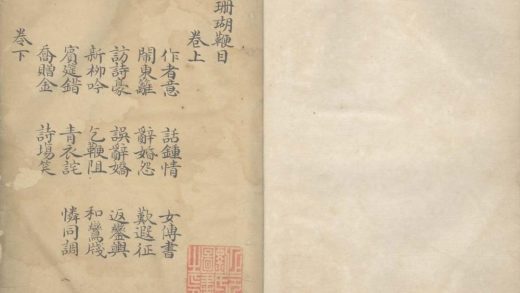 珊瑚鞭目
卷上
作者意 話鍾情 女傳書
鬧東籬 辭婚怨 歎遐征
訪詩豪 誤辭婚 返鑾輿
新柳吟 乞鞭阻 和鶯牋
賓筵錯 青衣詫 憐同調
喬贈金 詩場笑
卷下